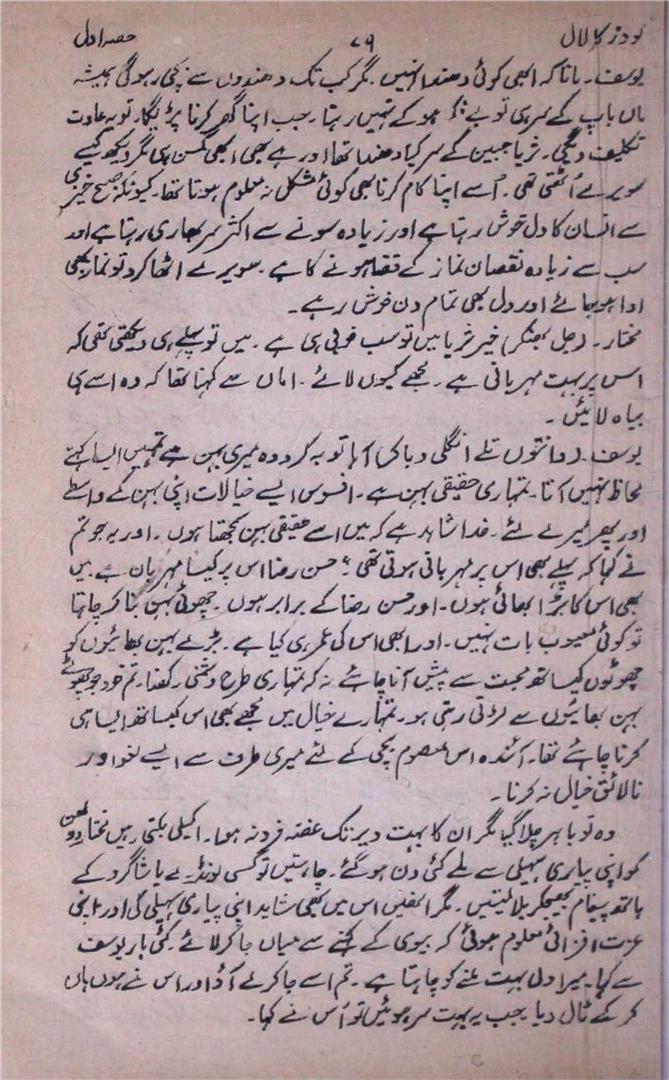 گودڑ کا لال ۷۹ حصہ اول
یوسف۔ مانا کہ ابھی کوئی دھندا نہیں۔ مگر کب تک دھندوں سے بچی رہو گی ہمیشہ
ماں باپ کے سر ہی تو بے فکر ہو کے نہیں رہتا۔ جب اپنا گھر کرنا پڑیگا۔ تو یہ عادت
تکلیف دیگی۔ ثریا جبین کے سر کیا دھندا تھا اور ہے بھی ابھی کمسن ہی مگر دیکھ کیسے
سویرے اُٹھتی تھی۔ اُسے اپنا کام کرنا بھی کوئی مشکل نہ معلوم ہوتا تھا۔ کیونکہ صبح خیزی
سے انسان کا دل خوش رہتا ہے اور زیادہ سونے سے اکثر سر بھاری رہتا ہے اور
سب سے زیادہ نقصان نماز کے قضا ہونے کا ہے۔ سویرے اٹھا کرو تو نماز بھی
ادا ہو جائے اور دل بھی تمام دن خوش رہے۔
مختار۔ (جل بھنکر) خیر ثریا میں تو سب خوبی ہی ہے۔ میں تو پہلے ہی دیکھتی تھی کہ
اس پر بہت مہربانی ہے۔ مجھے کیوں لائے۔ اماں سے کہنا تھا کہ وہ اسے ہی
بیاہ لائیں۔
یوسف۔ (دانتوں تلے انگلی دبا کر) آہا توبہ کرو وہ میری بہن ہے تمہیں ایسا کہتے
لحاظ نہیں آتا۔ تمہاری حقیقی بہن ہے۔ افسوس ایسے خیالات اپنی بہن کے واسطے
اور پھر میرے لئے۔ خدا شاہد ہے کہ میں اسے حقیقی بہن سمجھتا ہوں۔ اور یہ جو تم
نے کہا کہ پہلے بھی اس پر مہربانی ہوتی تھی؟ حسن رضا اس پر کیسا مہربان ہے میں
بھی اس کا بڑا بھائی ہوں۔ اور حسن رضا کے برابر ہوں۔ چھوٹی بہن بنا کر چاہتا
تو کوئی معیوب بات نہیں۔ اور ابھی اس کی عمر ہی کیا ہے۔ بڑے بہن بھائیوں کو
چھوٹوں کیساتھ محبت سے پیش آنا چاہئے نہ کہ تمہاری طرح دشمنی رکھنا۔ تم خود جو چھوٹے
بہن بھائیوں سے لڑتی رہتی ہو۔ تمہارے خیال میں مجھے بھی اس کیساتھ ایسا ہی
کرنا چاہئے تھا۔ آئندہ اس معصوم بچی کے لئے میری طرف سے ایسے لغو اور
نالائق خیال نہ کرنا۔
وہ تو باہر چلا گیا مگر ان کا بہت دیر تک غصہ فرو نہ ہوا۔ اکیلی بکتی رہیں مختار دولھن
کو اپنی پیاری سہیلی سے ملے کئی دن ہو گئے۔ چاہتیں تو کسی لونڈے یا شاگرد کے
ہاتھ پیغام بھیجکر بلا لیتیں۔ مگر انھیں اس میں کبھی شاید اپنی پیاری سہیلی کی اور اپنی
عزت افزائی معلوم ہوئی کہ بیوی کے کہنے سے میاں جا کر لائے۔ کئی بار یوسف
سے کہا۔ میرا دل بہت ملنے کو چاہتا ہے۔ تم اسے جا کر لے آؤ اور اس نے ہوں ہاں
کر کے ٹال دیا۔ جب یہ بہت سر ہوئیں تو اُس نے کہا۔